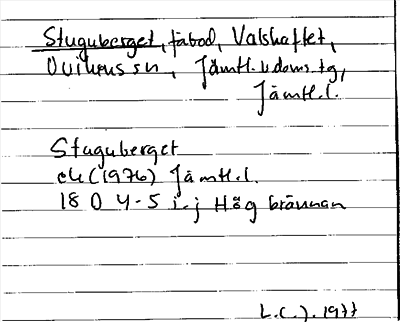 Stuguberget, fäbod, Valshaftet,
Ovikens sn, Jämtl. v. doms. tg,
Jämtl.l.
Stuguberget
ek (1976) Jämtl.l.
18 D 4-5 i-j Högbrännan
L.C.J. 1977